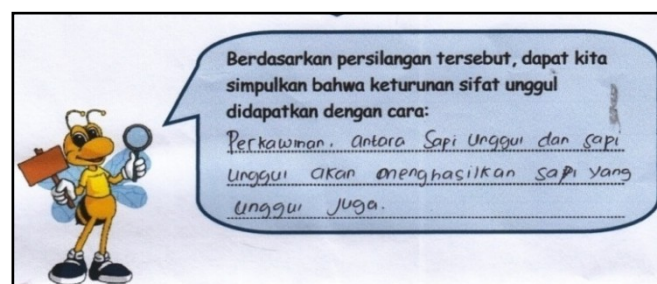 Berdasarkan persilangan tersebut, dapat kita
simpulkan bahwa keturunan sifat unggul
didapatkan dengan cara:
Perkawinan. antara Sapi Unggul dan sapi
unggul akan menghasilkan sapi yang
unggul juga.